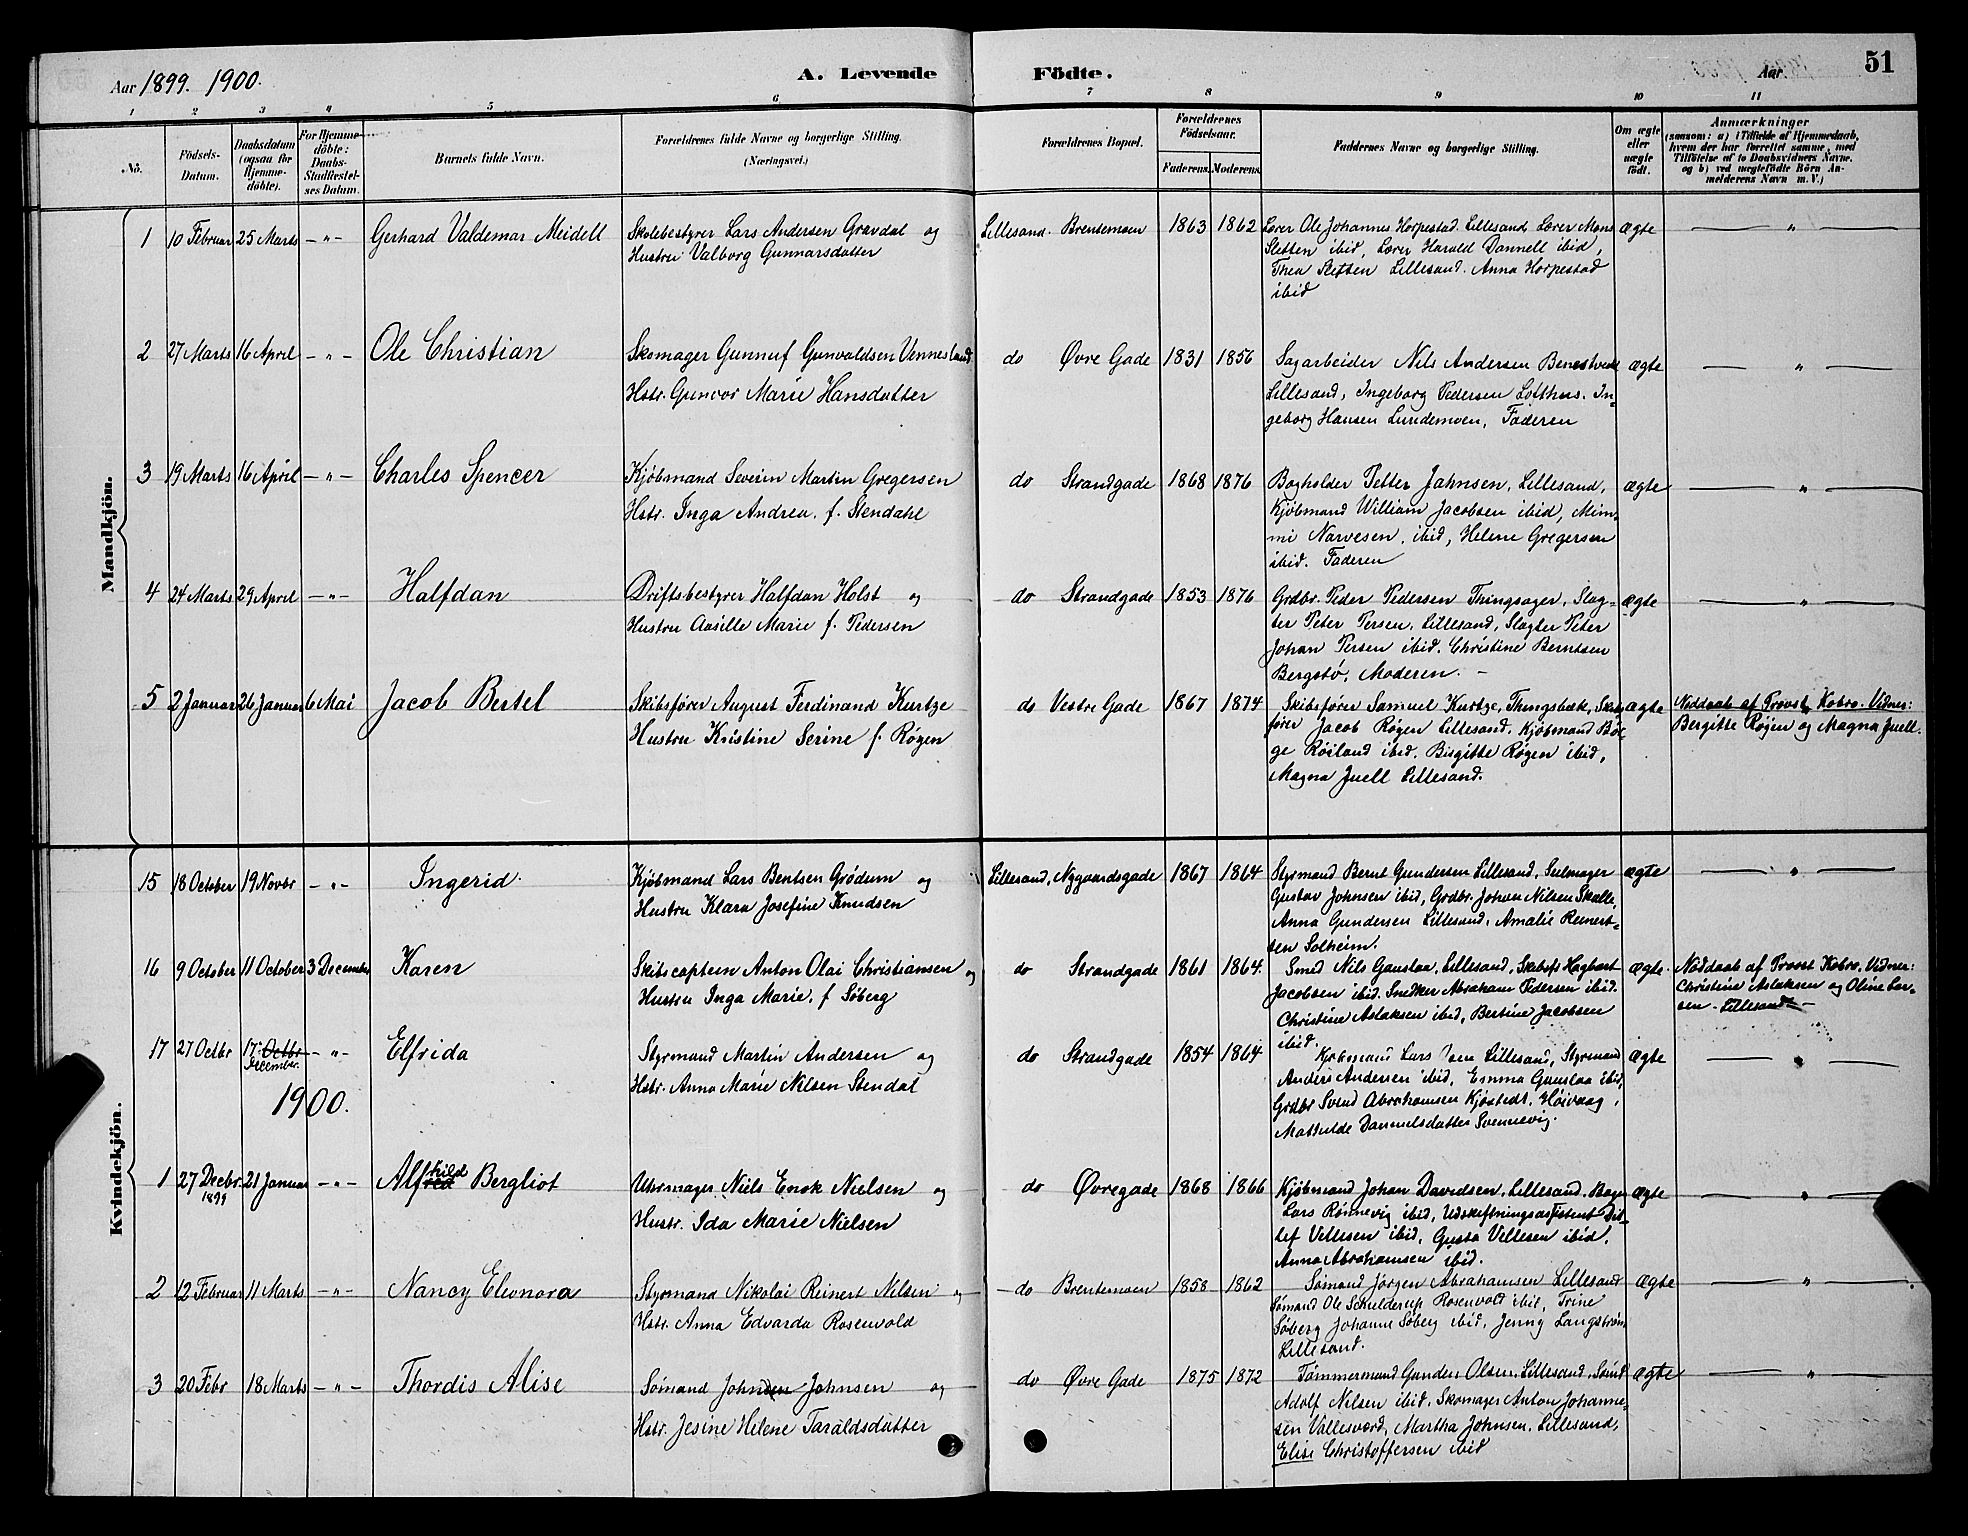 Aar 1899. 1900.
A. Levende Födte.
Aar
51
1 2 3 4 5 6 7 8 9 10 11
No.
Födsels-Datum.
Daabsdatum (ogsaa for Hjemmedöbte).
For Hjemmedöbte: Daabs-Stadfæstelses Datum.
Barnets fulde Navn.
Forældrenes fulde Navne og borgerlige Stilling. (Næringsvei.)
Forældrenes Bopæl.
Forældrenes Födselsaar.
Faderens. Moderens.
Faddernes Navne og borgerlige Stilling.
Om ægte eller uægte födt.
Anmærkninger
(saasom: a) i Tilfælde af Hjemmedaab, hvem der har forrettet samme, med Tilföielse af to Daabsvidners Navne. og b) ved uægtefödte Börn Anmelderens Navn m. V.)
Mandkjön.
1 10 Februar 25 Marts – " – Gerhard Valdemar Meidell
Skolebestyrer Lars Andersen Gravdal og
Hustru Valborg Gunnarsdatter
Lillesand. Brentemoen 1863 1862
Lærer Ole Johannes Horpestad. Lillesand, Lærer Mons
Sletten ibid, Lærer Harald Dannell ibid,
Thea Sletten Lillesand. Anna Horpestad
ibid
ægte "
2 27 Marts 16 April – " – Ole Christian
Skomager Gunnuf Gunvaldsen Vennesland.
Hstr. Guncor Marie Hansdatter
do Øvre Gade 1831 1856
Sagarbeider Nils Andersen Benestvedt
Lillesand, Ingeborg Pedersen Lotthus. In-
geborg Hansen Lundemoen, Faderen
ægte "
3 19 Marts 16 April – " – Charles Spencer
Kjøbmand Severin Martin Gregersen
Hstr. Inga Andrea. f. Stendahl
do Strandgade 1868 1876
Bogholder Petter Jahnsen, Lillesand,
Kjøbmand William Jacobsen ibid, Mim-
mi Narvesen, ibid, Helene Gregersen
ibid. Faderen
ægte "
4 24 Marts 29 April – " – Halfdan
Driftsbestyrer Halfdan Holst og
Hustru Aasille Marie f. Pedersen
do Strandgade 1853 1876
Grdbr. Peder Pedersen Thingsager, Slag-
ter Peter Persen, Lillesand, Slagter Peter
Johan Persen ibid. Christine Berntsen
Bergstø, Moderen. –
ægte "
5 2 Januar 26 Januar 6 Mai Jacob Bertel
Skibsfører August Ferdinand Kurtze
Hustru Kristine Serine f. Røgen
do Vestre Gade 1867 1874
Skibsfører Samuel Kurtze, Thingsbæk, Skibs
fører Jacob Røgen Lillesand. Kjøbmand Bør-
ge Røisland ibid. Birgitte Røgen ibid,
Magna Juell Lillesand.
ægte Nøddaab af Provst Kobro. Vidner:
Bergitte Røjen og Magna Juell.
Kvindekjön.
15 18 October 19 Novbr – " – Ingerid.
Kjøbmand Lars Bentsen Grødum og
Hustru Klara Josefine Knudsen
Lillesand, Nygaardsgade 1867 1864
Styrmand Bernt Gundersen Lillesand, Seilmager
Gustav Johnsen ibid, Grdbr. Johan Nilsen Skalle,
Anna Gundersen Lillesand, Amalie Reinert-
sen Solheim.
ægte "
16 9 October 11 October 3 December Karen
Skibscaptein Anton Olai Christiansen og
Hustru Inga Marie, f Søberg
do Strandgade 1861 1864.
Smed Nils Gauslaa, Lillesand, Skibsfr Hagbart
Jacobsen ibid. Snedker Abraham Pedersen ibid.
Christine Aslaksen ibid, Bertine Jacobsen
ibid.
ægte. Nøddaab af Provst Kobro. Vidner:
Christine Aslaksen og Oline Lar-
sen – Lillesand –
17 27 Octbr 17. Octbr
December. – " – Elfrida
Styrmand Martin Andersen og
Hstr. Anna Marie Nilsen Stendal
do Strandgade 1854 1864
Kjøbmand Lars Lillesand, Styrmand
Anders Andersen ibid, Emma Gauslaa ibid,
Grdbr Svend Abrahamsen Kjøstedt, Høivaag,
Mathilde Danielsdatter Svennevig.
ægte "
1900.
1 27 Decbr. 1899 21 Januar – " – Alfhild Bergliot
Uhrmager Niels Enok Nielsen og
Hustr. Ida Marie Nielsen
do Øvregade 1868 1866
Kjøbmand Johan Davidsen, Lillesand. Bager
Lars Rønnevig ibid, Udskiftningsassistent Det-
lef Vellesen ibid, Gusta Vellesen ibid,
Anna Abrahamsen ibid.
ægte "
2 12 Februar 11 Marts – " – Nancy Eleonora
Styrmand Nikolai Reinert Nilsen og
Hstr. Anna Edvarda Rosenvold
do Brentemoen 1858 1862
Sømand Jørgen Abrahamsen Lillesand
Sømand Ole Schulderup Rosenvold ibid, Trine
Søberg Johanne Søberg ibid, Jenny Langstrøm
Lillesand.
ægte "
3 20 Febr 18 Marts – " – Thordis Alise
Sømand John Johnsen og
Hstr. Jesine Helene Taraldsdatter
do Øvre Gade 1875 1872
Tømmermand Gunder Olsen, Lillesand, Sømd
Adolf Nilsen ibid. Skomager Anton Johanne-
sen Vallesværd, Martha Johnsen, Lillesand,
Elise Christoffersen ibid
ægte "